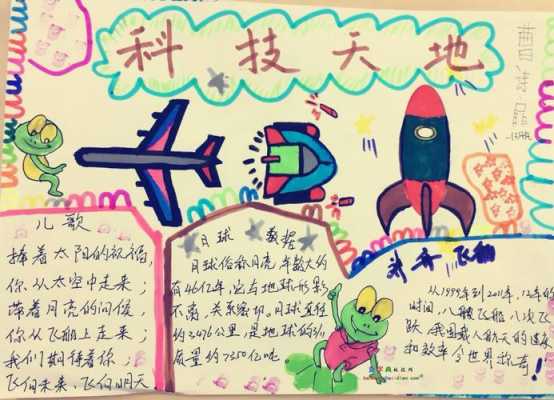 科技天地
儿歌
捧着太阳的祝福，
你从太空中走来；
带着月亮的问候，
你从飞船上走来；
我们期待着你；
飞向未来、飞向明天
月球 数据
月球俗称月亮，年大约
有46亿年，它与地球形影
不离，关系密切，月球直径
约3476公里，是地球的3/11
质量约7350亿吨
飞船
从1999年到2011年，12年的
时间，八艘飞船，八次飞
跃，我国载人航天的速度
和效率令世界惊奇！